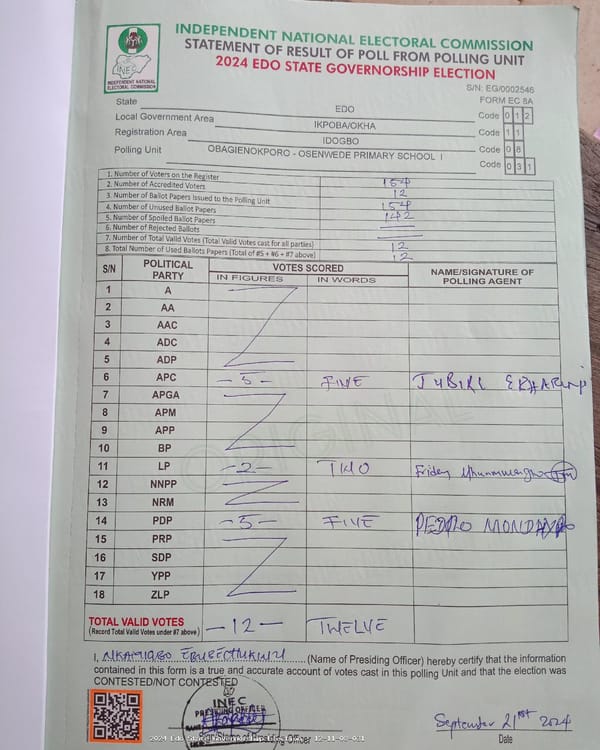 INDEPENDENT NATIONAL ELECTORAL COMMISSION
STATEMENT OF RESULT OF POLL FROM POLLING UNIT
2024 EDO STATE GOVERNORSHIP ELECTION
INEC
INDEPENDENT NATIONAL
ELECTORAL COMMISSION
S/N: EG/0002546
FORM EC 8A
State EDO Code 0 1 2
Local Government Area IKPOBA/OKHA Code 1 1
Registration Area IDOGBO Code 0 8
Polling Unit OBAGIENOKPORO - OSENWEDE PRIMARY SCHOOL I Code 0 3 1
1. Number of Voters on the Register 154
2. Number of Accredited Voters 12
3. Number of Ballot Papers Issued to the Polling Unit 154
4. Number of Unused Ballot Papers 142
5. Number of Spoiled Ballot Papers
6. Number of Rejected Ballots
7. Number of Total Valid Votes (Total Valid Votes cast for all parties) 12
8. Total Number of Used Ballots Papers (Total of #5 + #6 + #7 above) 12
S/N POLITICAL PARTY VOTES SCORED NAME/SIGNATURE OF POLLING AGENT
IN FIGURES IN WORDS
1 A
2 AA
3 AAC
4 ADC
5 ADP
6 APC -5- FIVE
7 APGA
8 APM
9 APP
10 BP
11 LP -2- TWO Friday
12 NNPP
13 NRM
14 PDP -5- FIVE PEDRO MONDAY
15 PRP
16 SDP
17 YPP
18 ZLP
ORIGINAL
TOTAL VALID VOTES -12- TWELVE
(Record Total Valid Votes under #7 above)
I, (Name of Presiding Officer) hereby certify that the information
contained in this form is a true and accurate account of votes cast in this polling Unit and that the election was
CONTESTED/NOT CONTESTED
INEC
PRESIDING OFFICER
September 21st 2024
Date